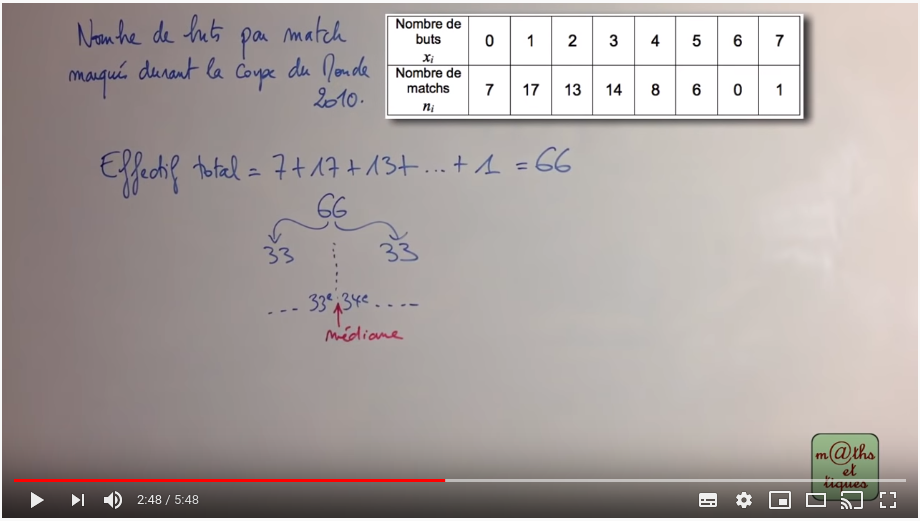 Nombre de buts par match
marqués durant la Coupe du Monde
2010.
Nombre de buts xᵢ 0 1 2 3 4 5 6 7
Nombre de matchs nᵢ 7 17 13 14 8 6 0 1
Effectif total = 7+17+13+...+1 = 66
66
33 33
... 33e 34e ....
médiane
m@ths
et
tiques
2:48 / 5:48